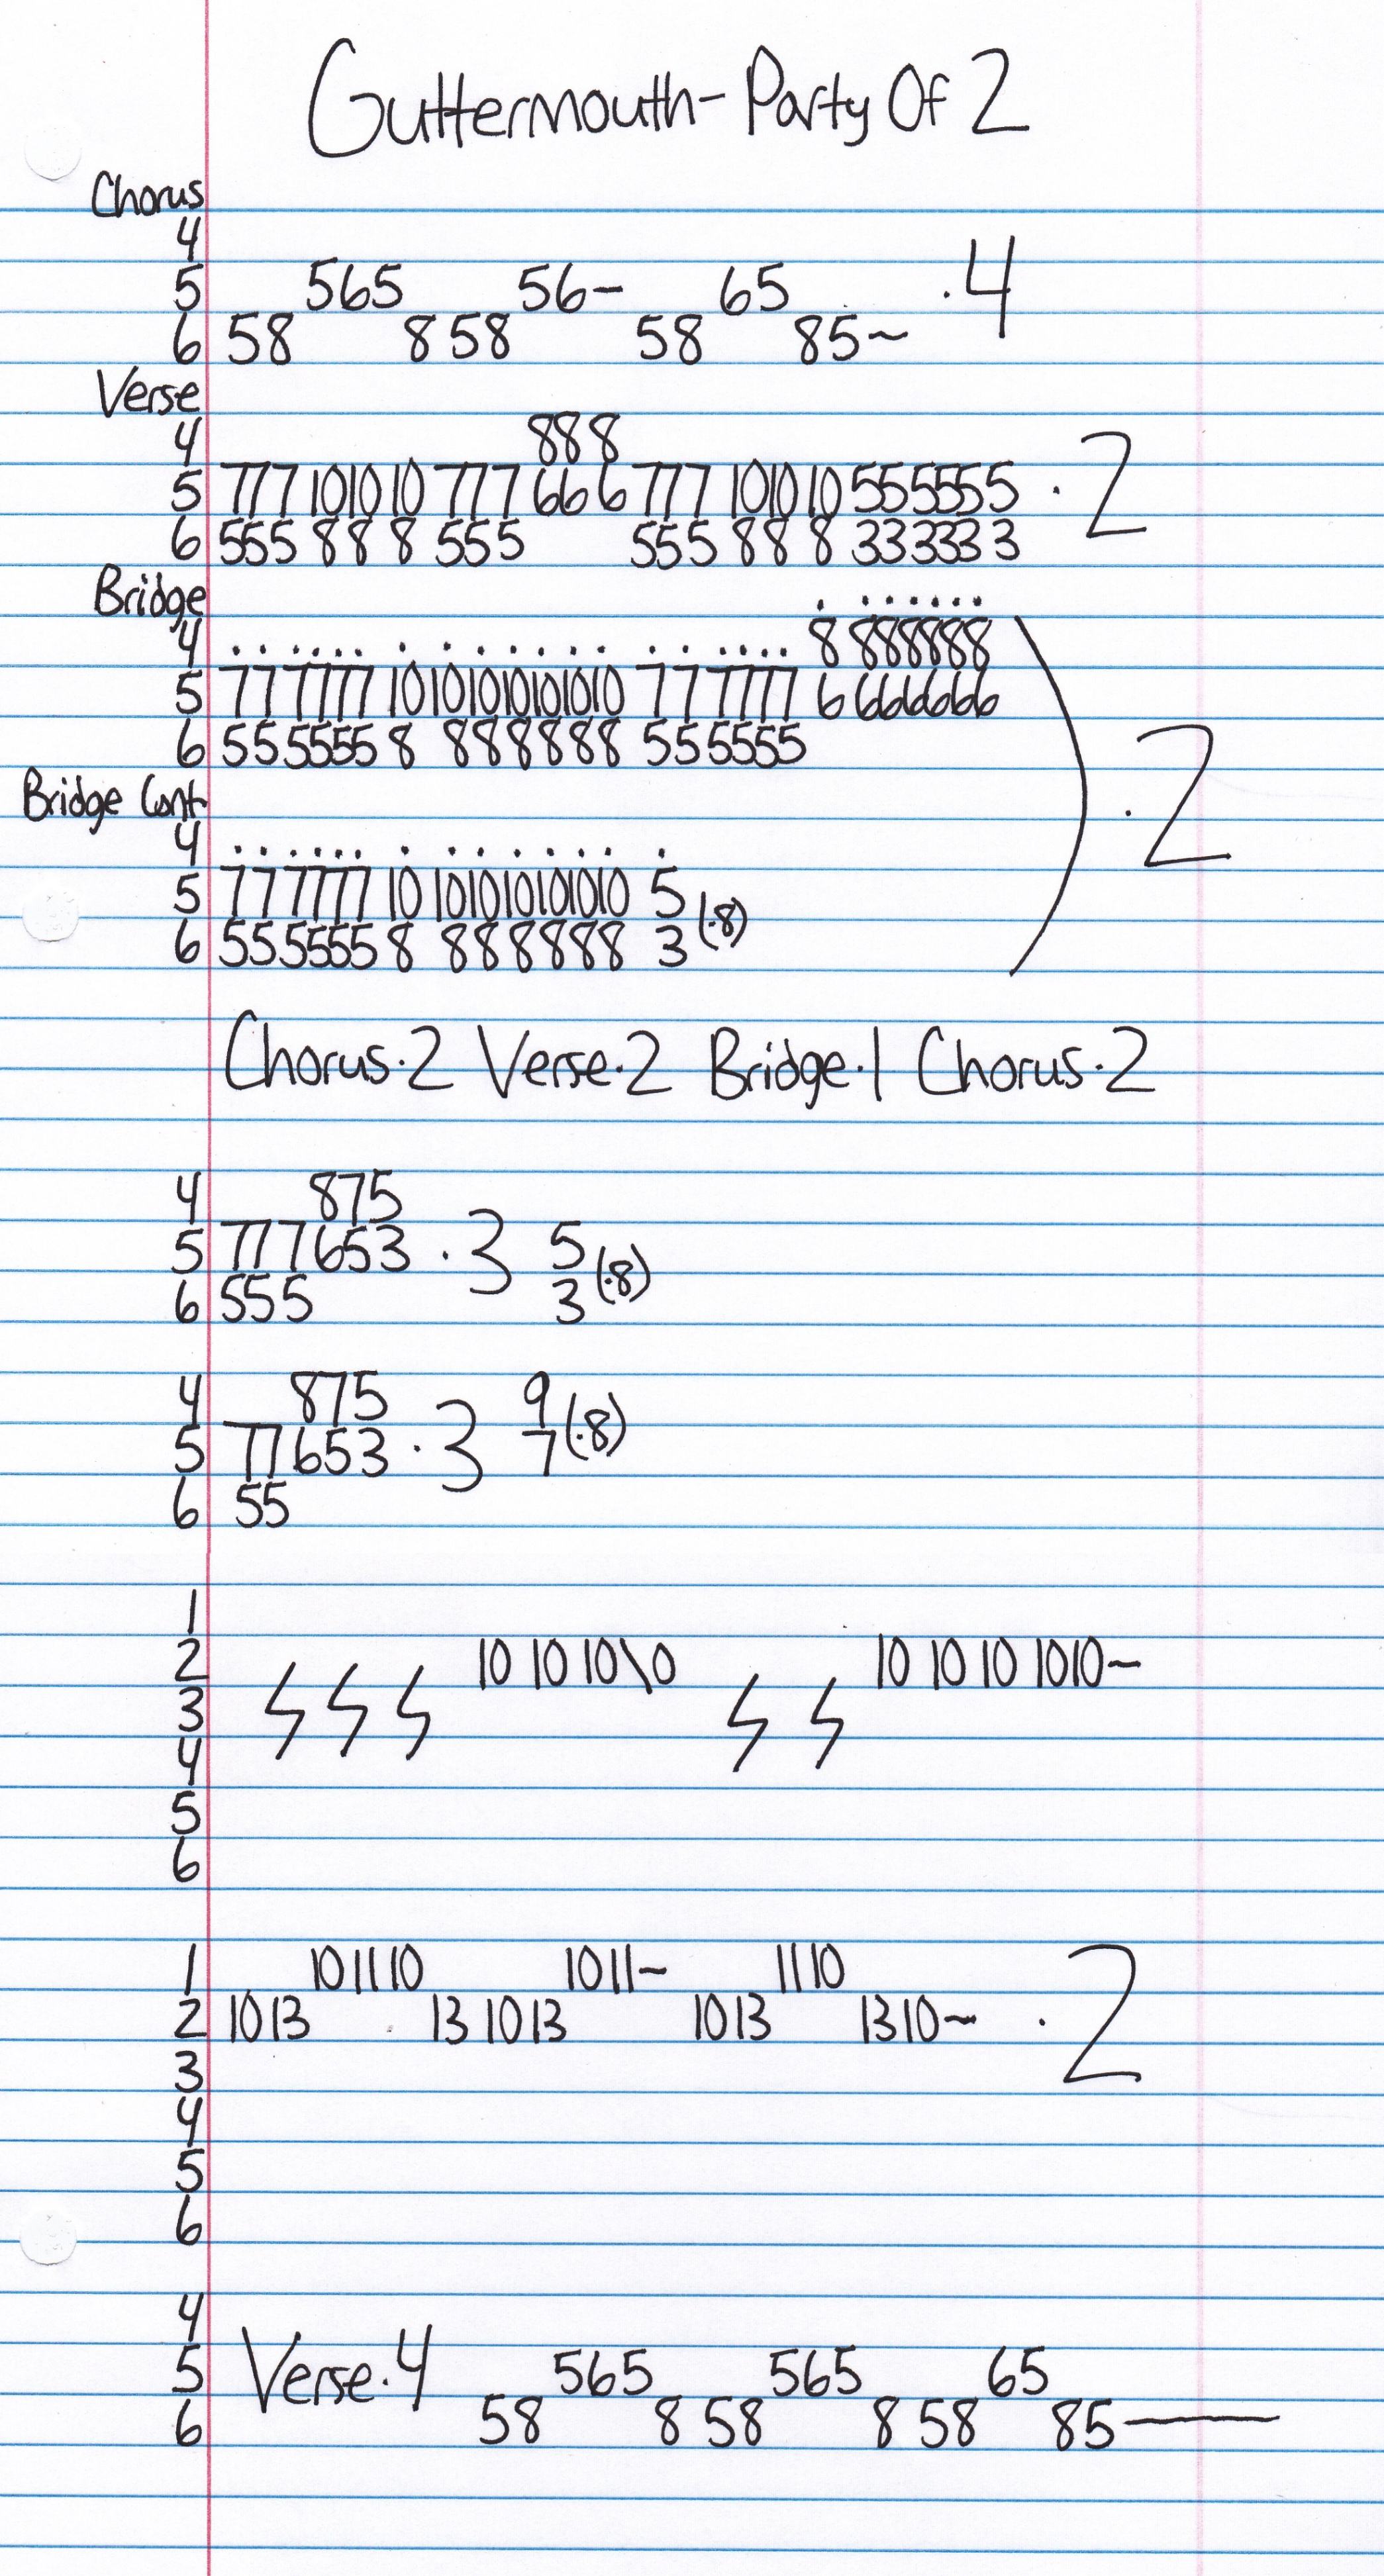 Guttermouth- Party Of 2
Chorus
4
5 565 56~ 65 .4
6 58 8 58 58 85~
Verse
4 888
5 777 101010 777 666 777 101010 555555 . 2
6 555 888 555 555 888 333333
Bridge . . . . . . .
4 . . . . . . . . . . . . . . . . . . . . 8 888888
5 77 7777 10 101010101010 77 7777 6 666666
6 55 5555 8 888888 55 5555 . 2
Bridge Cont.
4 . . . . . . . . . . . . . .
5 77 7777 10 101010101010 5
6 55 5555 8 888888 3 (.8)
Chorus.2 Verse.2 Bridge.1 Chorus.2
4 875
5 777653 . 3 5
6 555 3 (.8)
4 875 9
5 77653 . 3 7 (.8)
6 55
1
2 10 10 10\0 10 10 10 1010~
3
4
5
6
1 101110 1011~ 1110
2 1013 13 1013 1013 1310~ . 2
3
4
5
6
4
5 Verse.4 565 565 65
6 58 8 58 8 58 85—